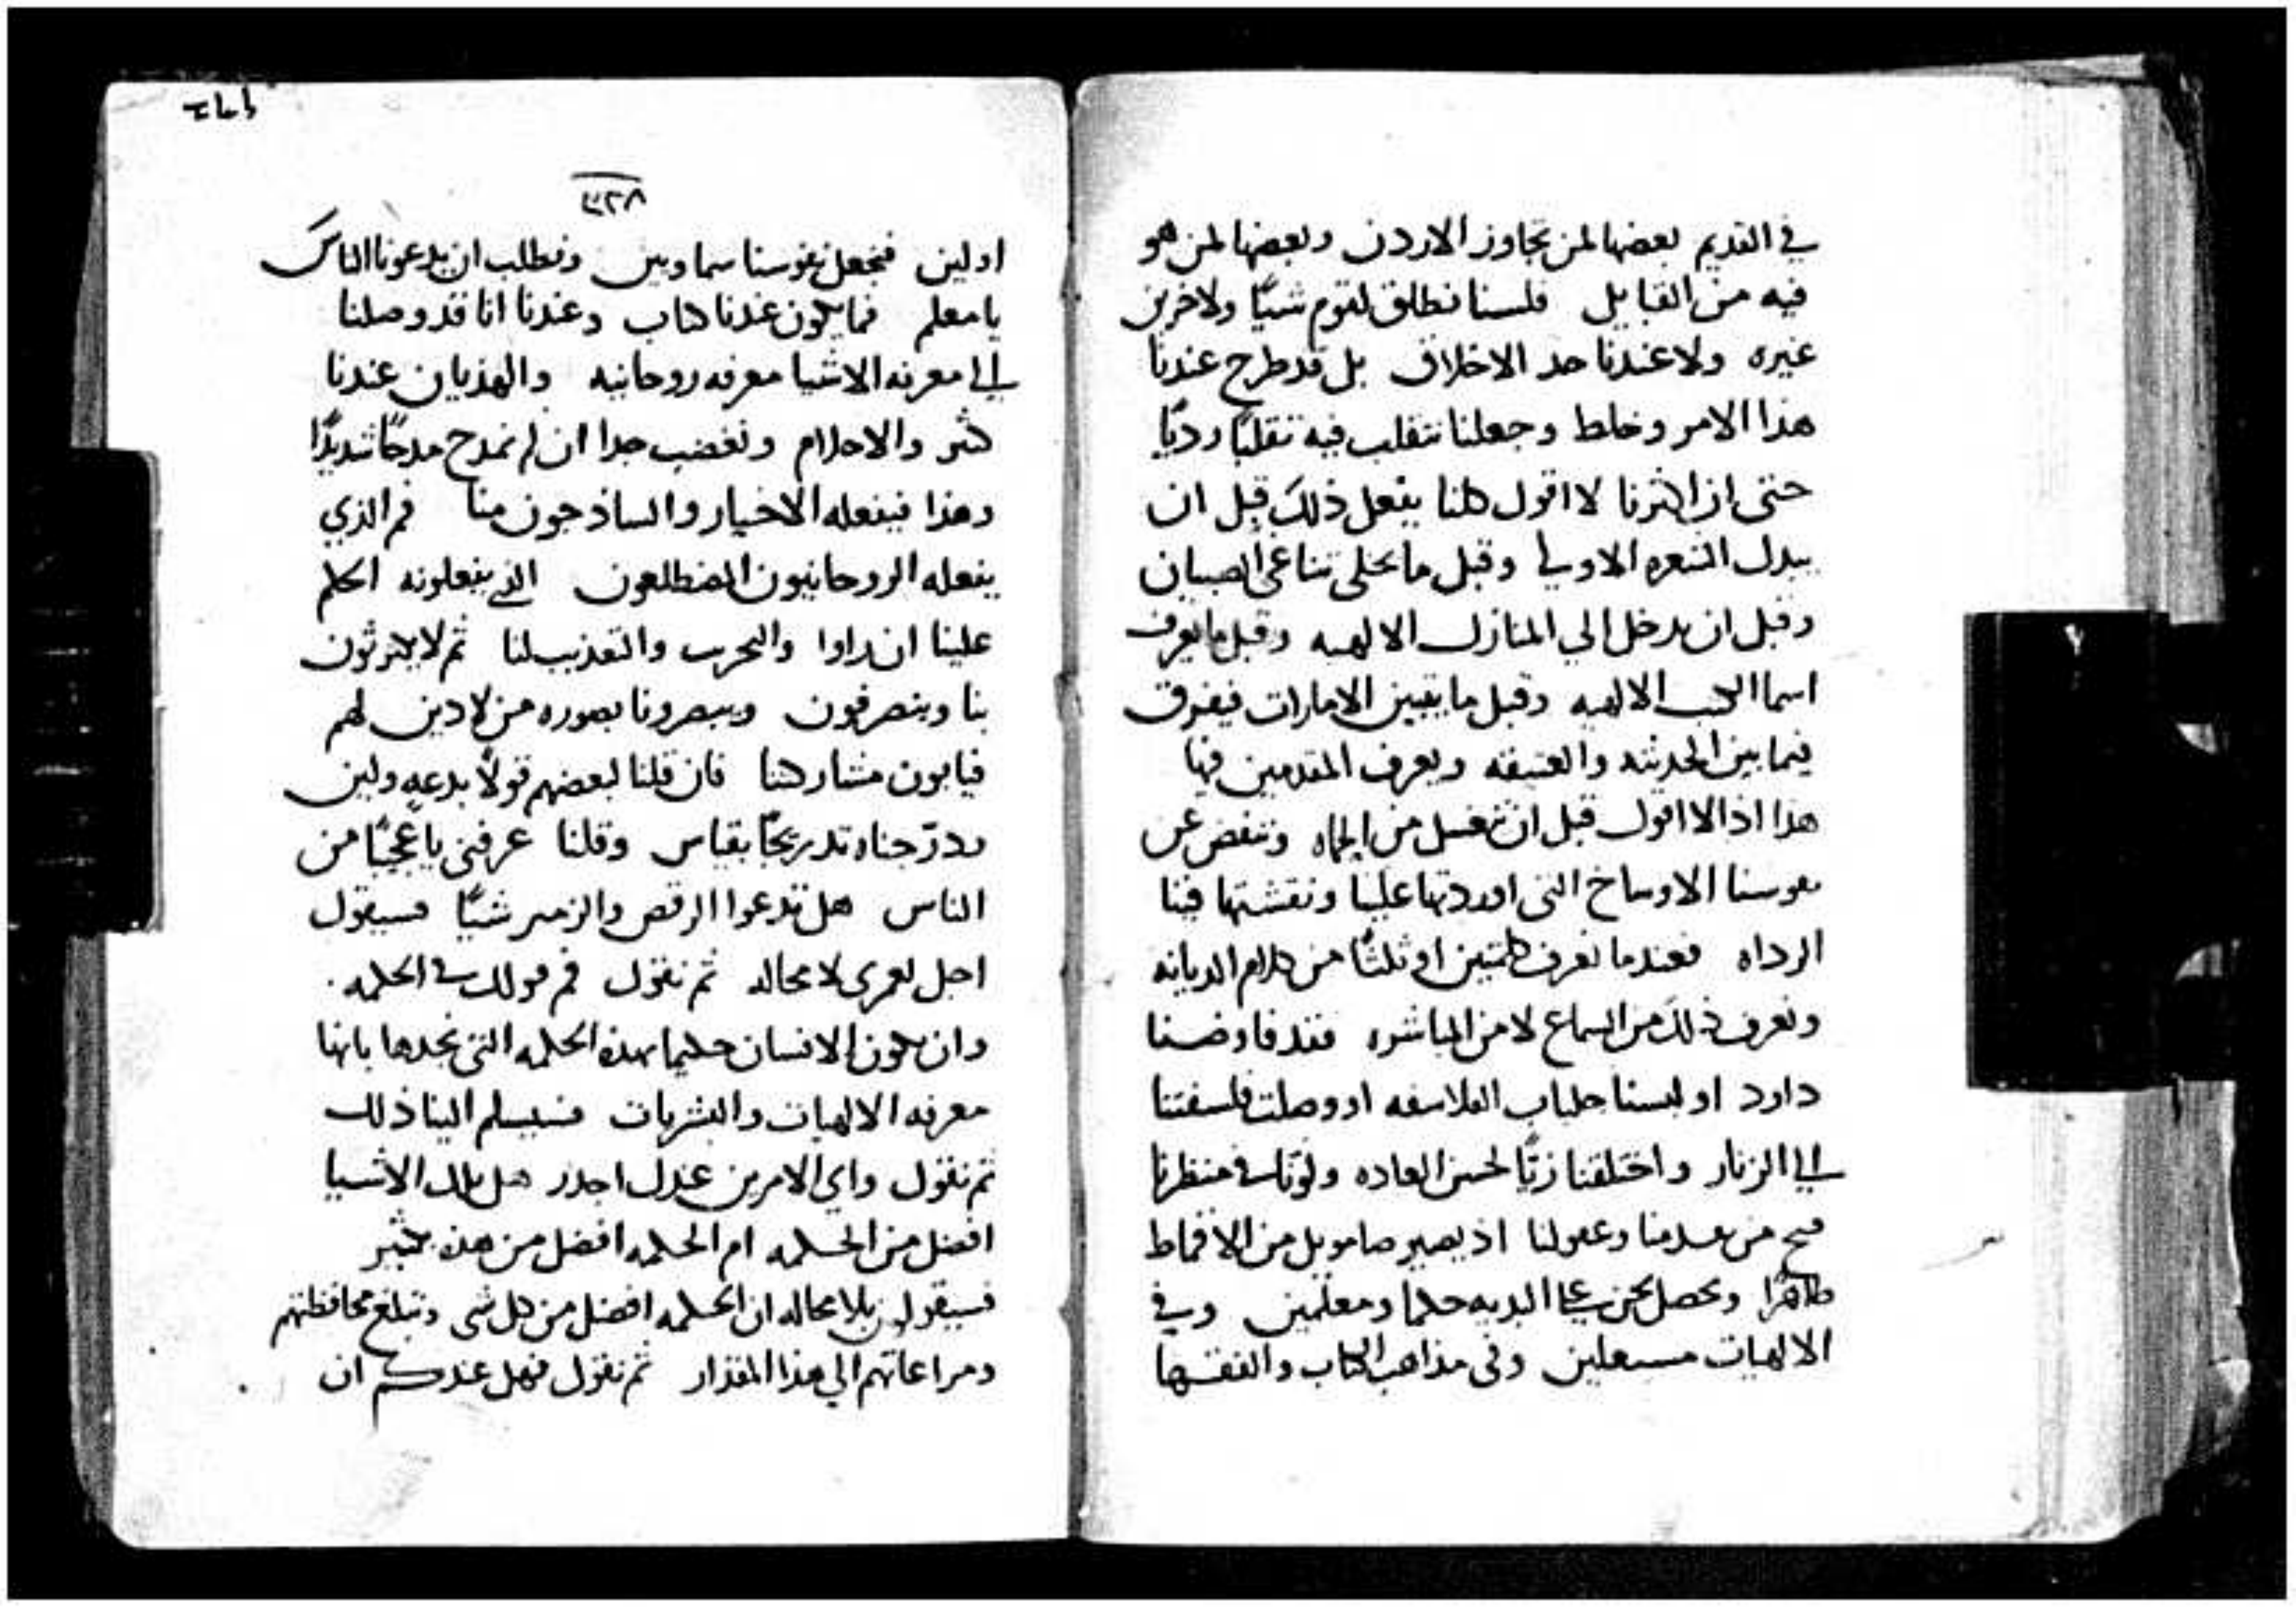 في القديم بعضها لمن تجاوز الاردن وبعضها لمن هو
فيه من القبايل فلسنا نطلق لقوم شيًا ولاخرين
غيره ولا عندنا حد الاخلاق بل قد طرح عندنا
هذا الامر وخلط وجعلنا نتقلب فيه تقلبًا رديًا
حتى ان اكثرنا لا اقول كلنا يفعل ذلك قبل ان
يبدل الشعره الاولي وقبل ما يخلي تناغي الصبيان
وقبل ان يدخل الي المنازل الالهيه وقبل ما يعرف
اسما الكتب الالهيه وقبل ما يتبين الامارات فيفرق
فيما بين الحديثه والعتيقه ويعرف المقدمين فيها
هذا اذا لا اقول قبل ان نغسل من الحماه وننفض عن
نفوسنا الاوساخ التى اوردتها علينا ونقشتها فينا
الرداه فعندما نعرف كلمتين او ثلثًا من كلام الديانه
ونعرف ذلك من السماع لا من المباشره فقد فاوضنا
داود او لبسنا جلباب الفلاسفه او وصلت فلسفتنا
الي الزنار واختلقنا زيًا لحسن العاده ولونًا في منظرنا
من وعقولنا اذ يصير صامويل من الاقماط
طاهرًا ونحصل نحن علي البديه حكما ومعلمين وفي
الالهيات مستعلين وفى مذاهب الكتاب والفقها
٣٢٨
اولين فنجعل نفوسنا سماويين ونطلب ان يدعونا الناس
يا معلم فما يكون عندنا كتاب وعندنا انا قد وصلنا
الي معرفه الاشيا معرفه روحانيه والهذيان عندنا
كثير والاحلام ونغضب جدا ان لم نمدح مدحًا شديدًا
وهذا فيفعله الاخيار والساذجون منا فم الذي
يفعله الروحانيون المضطلعون الذي يفعلونه الحكم
علينا ان راوا والتحرب والتعذيب لنا ثم لا يكترثون
بنا وينصرفون ويبصرونا بصوره من لا دين لهم
فيابون مشاركتنا فان قلنا لبعضهم قولًا بدعه ولين
ودرّجناه تدريجًا بقياس وقلنا عرفنى يا عجيبًا من
الناس هل تدعوا الرقص والزمر شيًا فسيقول
اجل لعمرى لا محاله ثم نقول فم قولك في الحكمه
وان يكون الانسان حكيما بهذه الحكمه التى نحدها بانها
معرفه الالهيات والبشريات فسيسلم الينا ذلك
ثم نقول واي الامرين عندك اجدر هل تلك الاشيا
افضل من الحكمه ام الحكمه افضل من هذه بكثير
فسيقولون بلا محاله ان الحكمه افضل من كل شي وتبلغ محافظتهم
ومراعاتهم الي هذا المقدار ثم نقول فهل عندكم ان